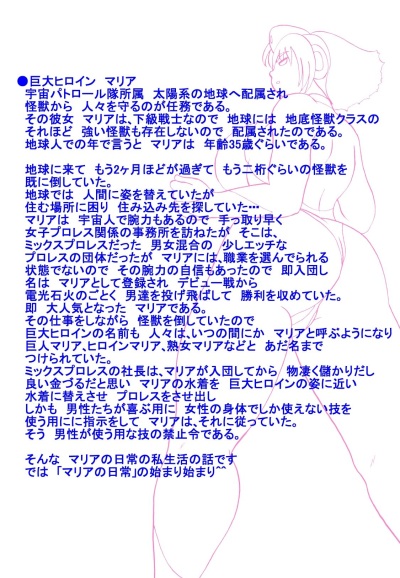 ●巨大ヒロイン マリア
宇宙パトロール隊所属 太陽系の地球へ配属され
怪獣から 人々を守るのが任務である。
その彼女 マリアは、下級戦士なので 地球には 地底怪獣クラスの
それほど 強い怪獣も存在しないので 配属されたのである。
地球人での年で言うと マリアは 年齢35歳ぐらいである。
地球に来て もう2ヶ月ほどが過ぎて もう二桁ぐらいの怪獣を
既に倒していた。
地球では 人間に姿を替えていたが
住む場所に困り 住み込み先を探していた…
マリアは 宇宙人で腕力もあるので 手っ取り早く
女子プロレス関係の事務所を訪ねたが そこは、
ミックスプロレスだった 男女混合の 少しエッチな
プロレスの団体だったが マリアには、職業を選んでられる
状態でないので その腕力の自信もあったので 即入団し
名は マリアとして登録され デビュー戦から
電光石火のごとく 男達を投げ飛ばして 勝利を収めていた。
即 大人気となった マリアである。
その仕事をしながら 怪獣を倒していたので
巨大ヒロインの名前も 人々は、いつの間にか マリアと呼ぶようになり
巨人マリア、ヒロインマリア、熟女マリアなどと あだ名まで
つけられていた。
ミックスプロレスの社長は、マリアが入団してから 物凄く儲かりだし
良い金づるだと思い マリアの水着を 巨大ヒロインの姿に近い
水着に替えさせ プロレスをさせ出し
しかも 男性たちが喜ぶ用に 女性の身体でしか使えない技を
使う用にに指示をして マリアは、それに従っていた。
そう 男性が使う用な技の禁止令である。
そんな マリアの日常の私生活の話です
では 「マリアの日常」の始まり始まり^^